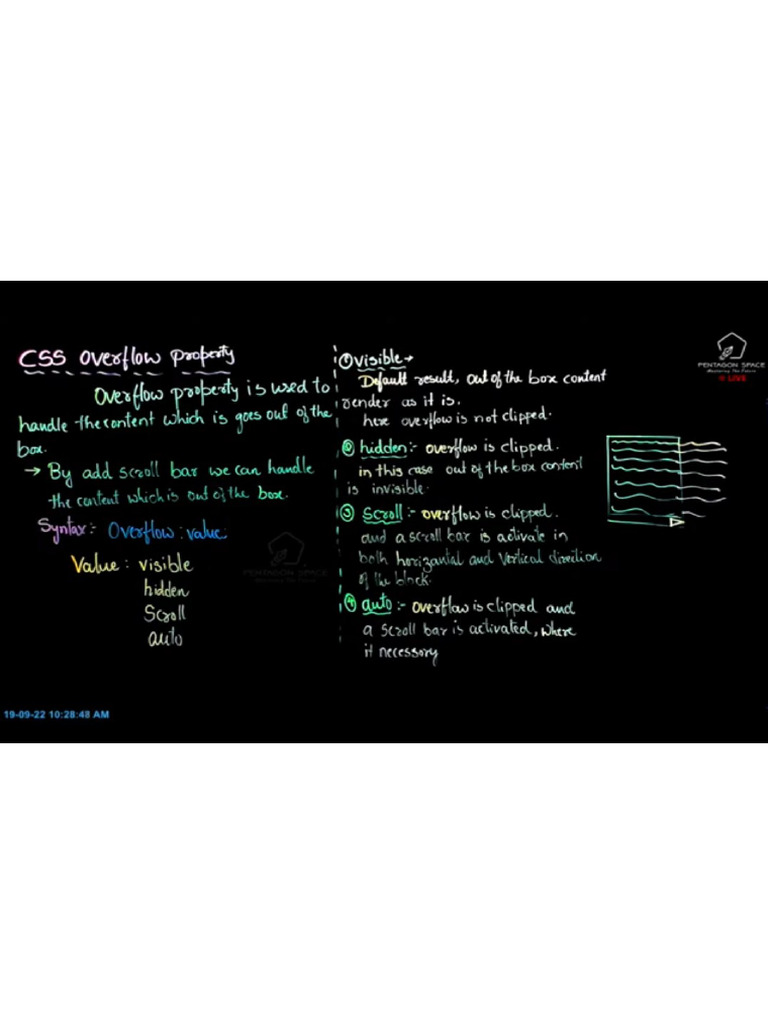 CSS Overflow Property
Overflow property is used to
handle the content which is goes out of the
box.
→ By add scroll bar we can handle
the content which is out of the box.
Syntax:- Overflow: value;
Value: visible
hidden
Scroll
auto
① visible →
Default result, out of the box content
render as it is.
here overflow is not clipped.
② hidden:- overflow is clipped.
in this case out of the box content
is invisible.
③ Scroll:- overflow is clipped.
and a scroll bar is activate in
both horizantal and vertical direction
of the block.
④ auto:- overflow is clipped and
a scroll bar is activated, where
it necessary
PENTAGON SPACE
Mastering The Future
LIVE
PENTAGON SPACE
Mastering The Future
19-09-22 10:28:48 AM